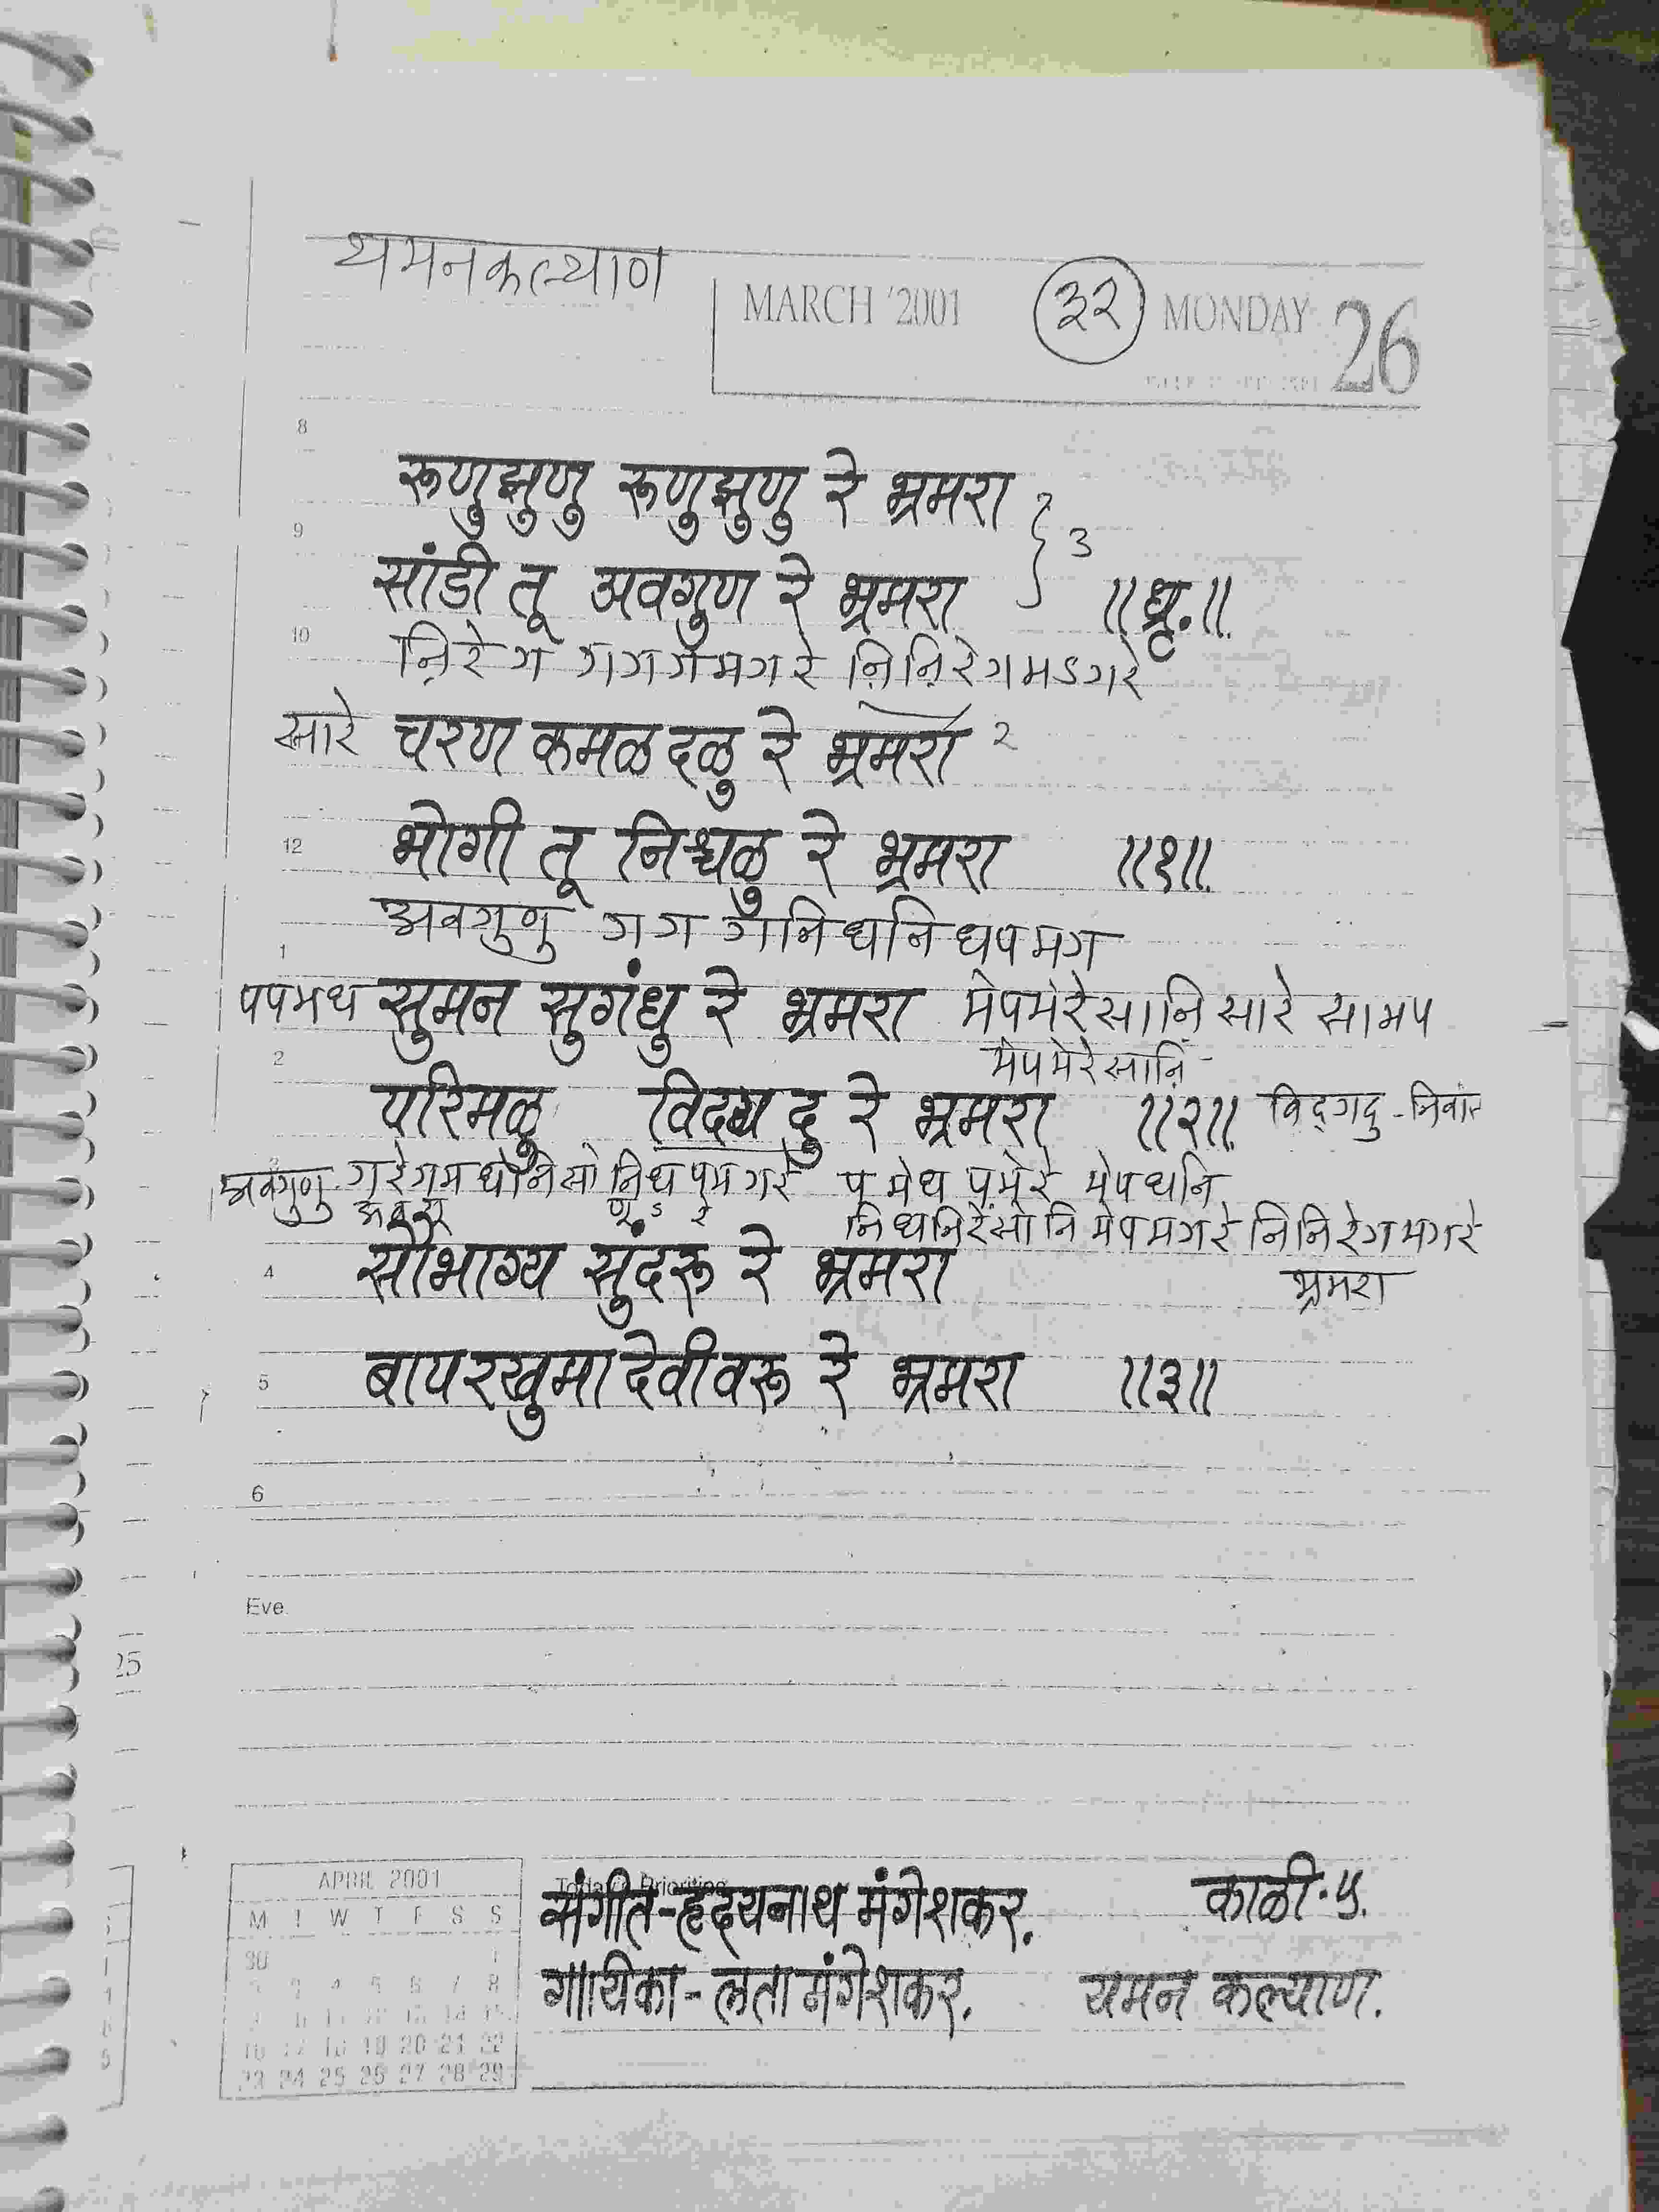 यमनकल्याण
MARCH '2001 ३२ MONDAY 26
8
रूणुझुणु रूणुझुणु रे भ्रमरा
9
} 3
सांडी तू अवगुण रे भ्रमरा ॥ध्रृ.॥
10
नि़रेग गगगमगरे नि़नि़रेगमऽगरे
सारे चरण कमळ दळु रे भ्रमरा २
12 भोगी तू निश्चळु रे भ्रमरा ॥१॥
अवगुणु गग गनिधनिधपमग
1
पपमध सुमन सुगंधु रे भ्रमरा मेपमेरेसानि सारे सामप
2 मेपमेरेसानि
परिमळु विदग्ध दु रे भ्रमरा ॥२॥ विद्गदु -
अवगुणु गरेगमधनिसां निधपमगरे पमेध पमेरे मेपधनि
निधनिरेंसांनि मेपमगरे निनिरेगमगरे
4 सौभाग्य सुंदरू रे भ्रमरा भ्रमरा
5 बापरखुमादेवीवरू रे भ्रमरा ॥३॥
6
Eve.
25
APRIL 2001
M T W T F S S
30 1
2 3 4 5 6 7 8
16 17 18 19 20 21 22
23 24 25 26 27 28 29
Today's Priorities
संगीत-हृदयनाथ मंगेशकर. काळी-५.
गायिका-लता मंगेशकर. यमन कल्याण.